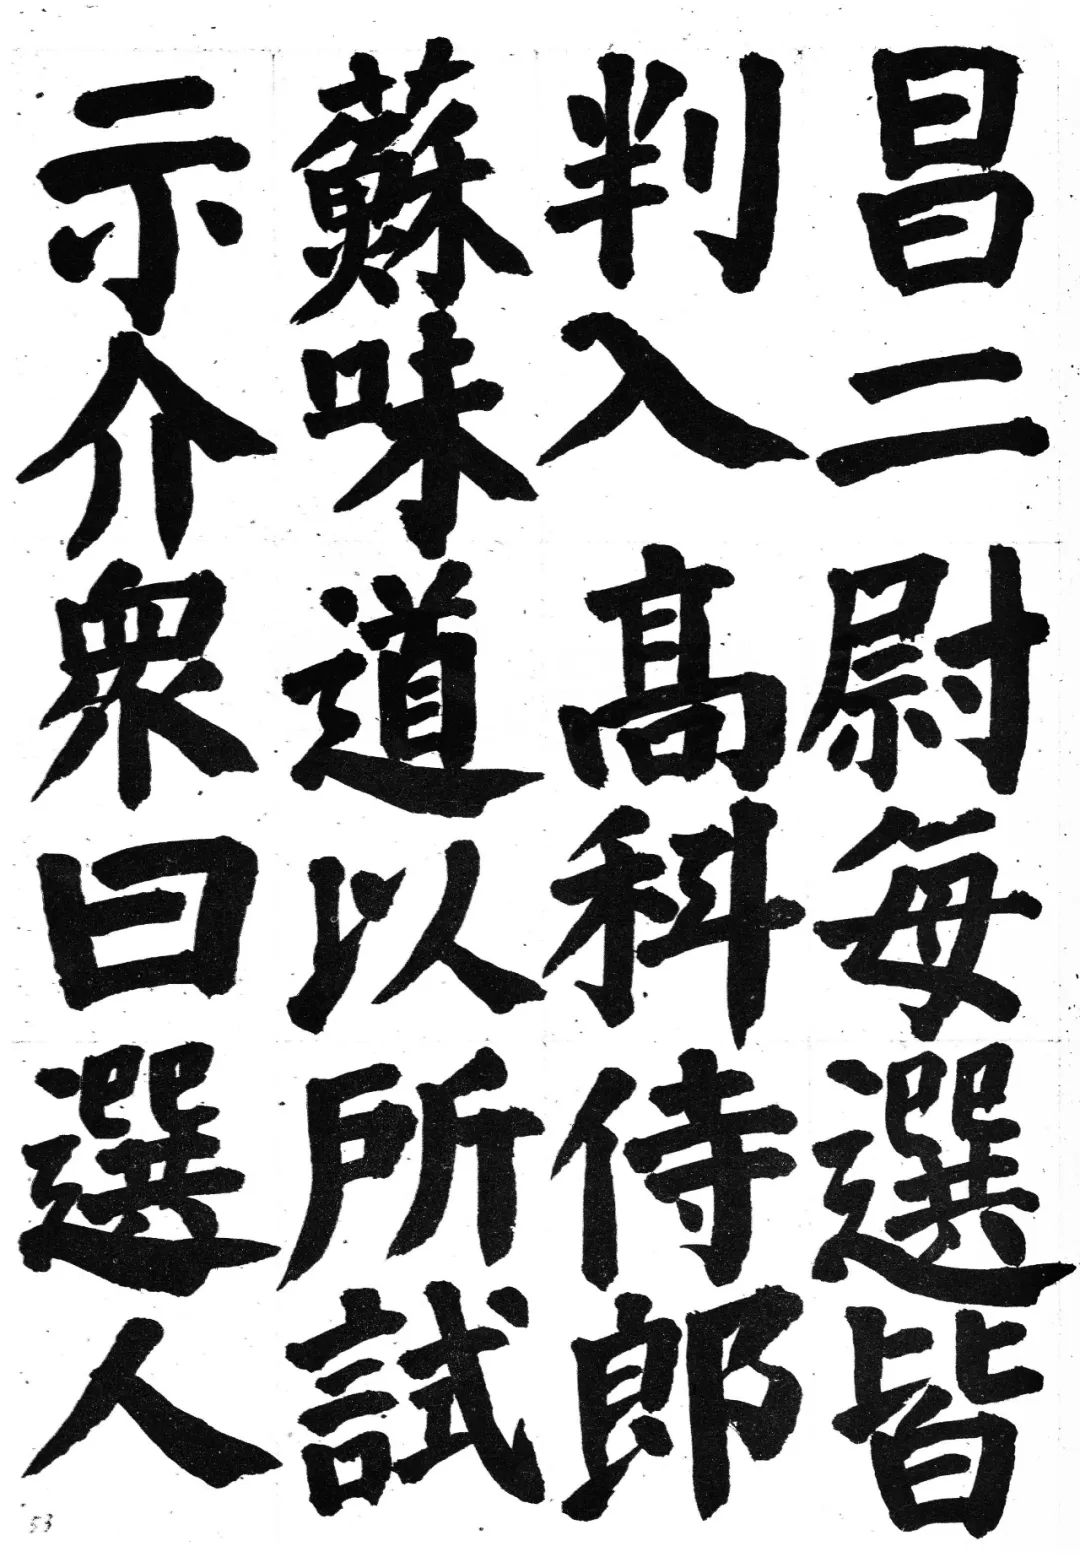 昌二尉每選皆
判入高科侍郎
蘇味道以所試
示介衆曰選人
53